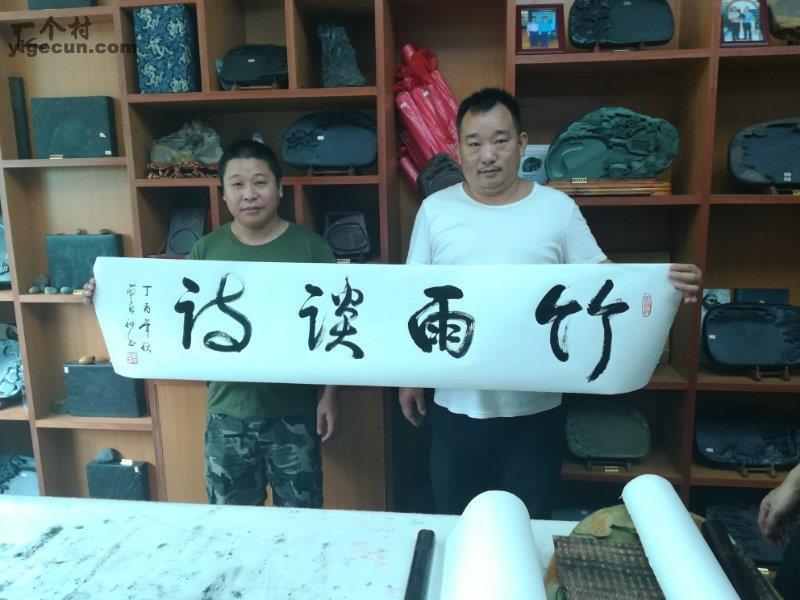 一个村
yigecun.com
竹雨談詩
丁酉年秋